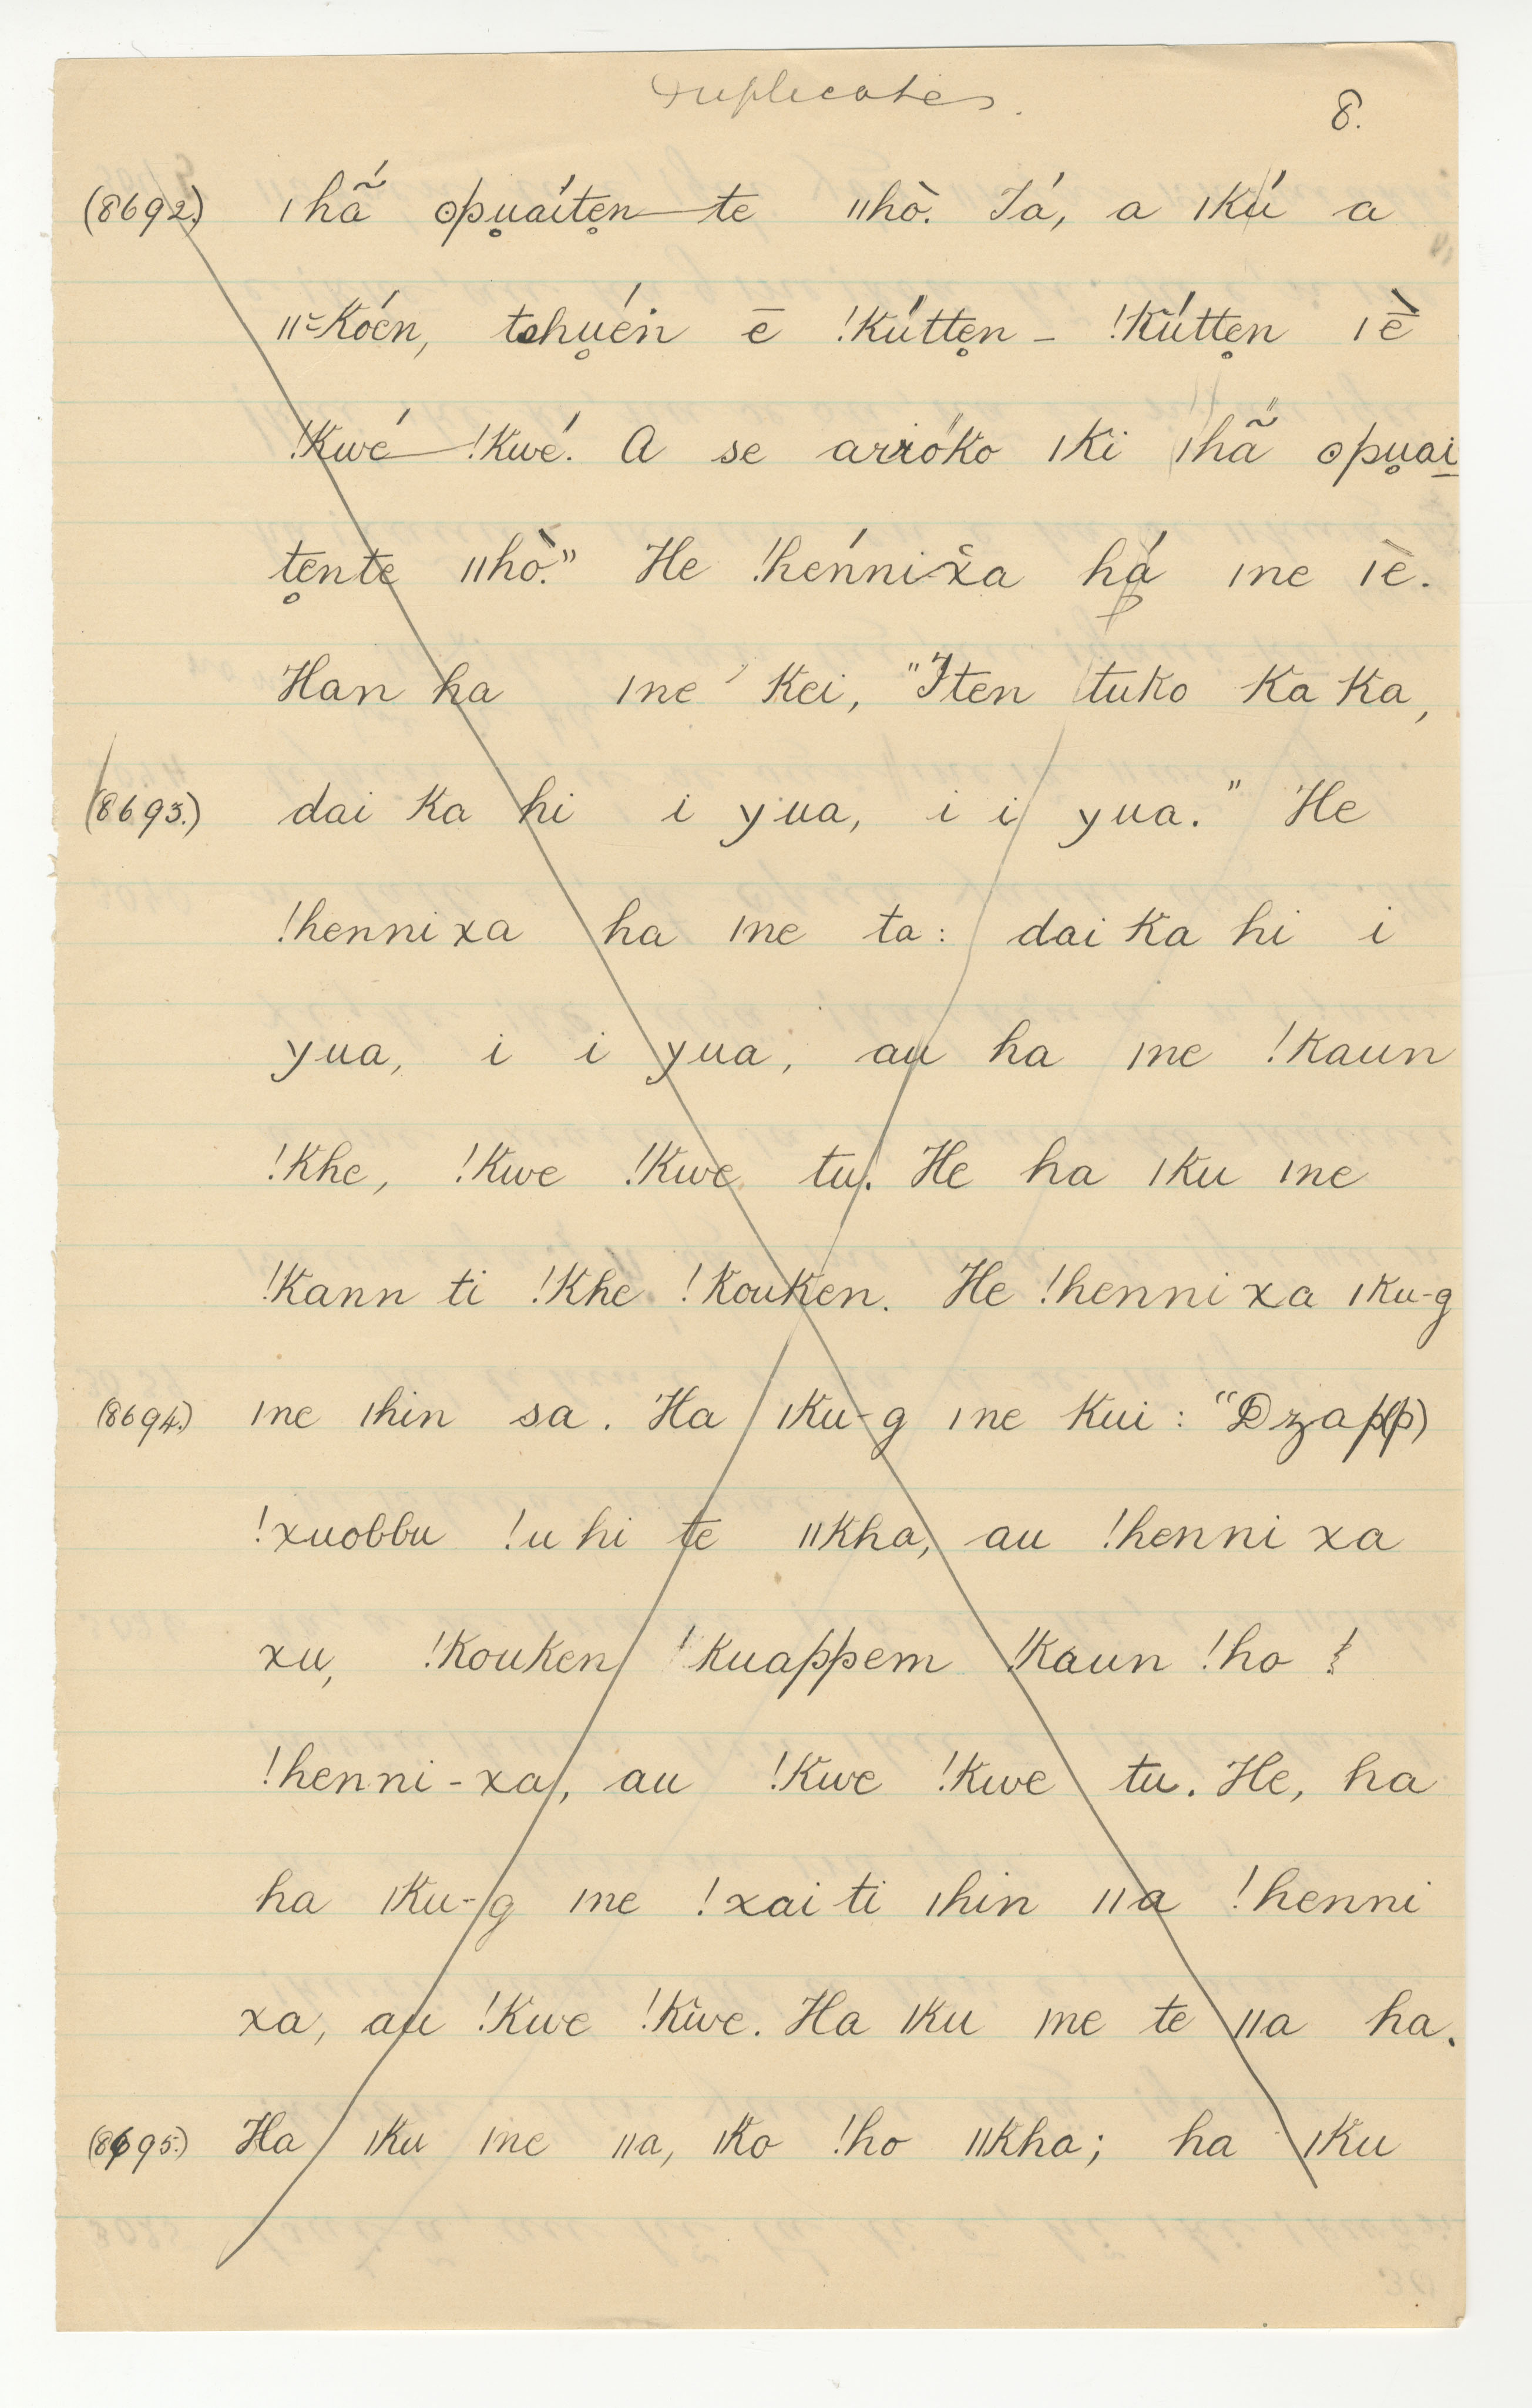 Duplicates.
8.
(8692.) ǀhã́ ʘpu̥aíte̥n-te ǁhò. Tá, a ǀKú a
ǁ=Kóën, tchu̥én ē !Kútte̥n - !Kútte̥n ǀè̄
!Kwé-!Kwé. A se arróko ǀKi ǀhã́ ʘpu̥ai
te̥nte ǁhò." He !hénnixa há ǀne ǀè.
Han ha ǀne Kei, "Iten tuko Ka Ka,
(8693.) dai Ka hi i yua, i i yua." He
!hennixa ha ǀne ta: dai Ka hi i
yua, i i yua, au ha ǀne !Kaun
!Khe, !Kwe !Kwe tu. He ha ǀKu ǀne
!Kann ti !Khe !Kouken. He !hennixa ǀKu-g
(8694.) ǀne ǀhin sa. Ha ǀKu-g ǀne Kui: "Dzap(p)
!xuobbu !u hi te ǁKha, au !henni xa
xu, !Kouken !kuappem !Kaun !ho !
!henni-xa, au !Kwe !Kwe tu. He, ha
ha ǀKu-g ǀne !xai ti ǀhin ǁa !henni
xa, au !Kwe !Kwe. Ha ǀKu ǀne te ǁa ha.
(8695.) Ha ǀKu ǀne ǁa, ǀKo !ho ǁKha; ha ǀKu